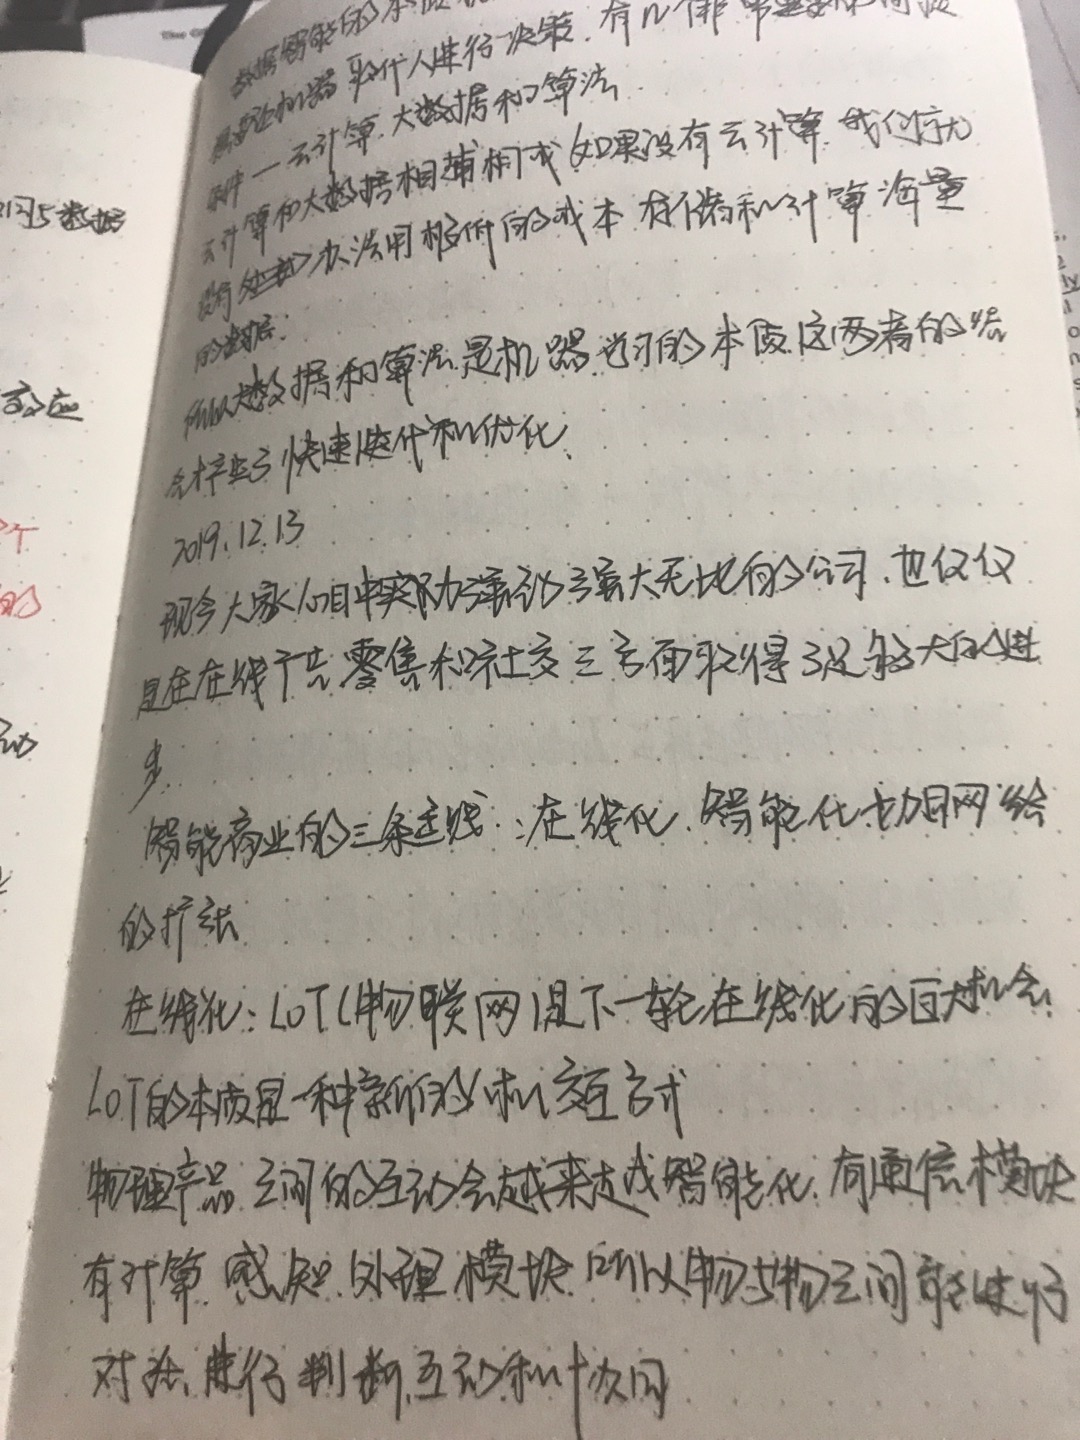 数据智能的本质
就要让机器取代人进行决策,有几个非常重要的前提
条件——云计算,大数据和算法
云计算和大数据相辅相成,如果没有云计算,我们将无
没有办法用极低的成本存储和计算海量
的数据;
所以大数据和算法是机器学习的本质,这两者的结
合林生了快速迭代和优化、
2019.12.13
现今大家心目中实力强劲强大无比的公司,也仅仅
是在在线广告零售和社交三方面取得了足够大的进
步.
智能商业的三条主线:在线化、智能化、协同网络
的扩张
在线化:LoT(物联网)是下一轮在线化的巨大机会,
LoT的本质是一种新的人机交互方式
物理产品之间的互动会越来越成智能化,有通信模块
有计算、感知、处理模块 所以物与物之间能进行
对话,进行判断,互动和协同